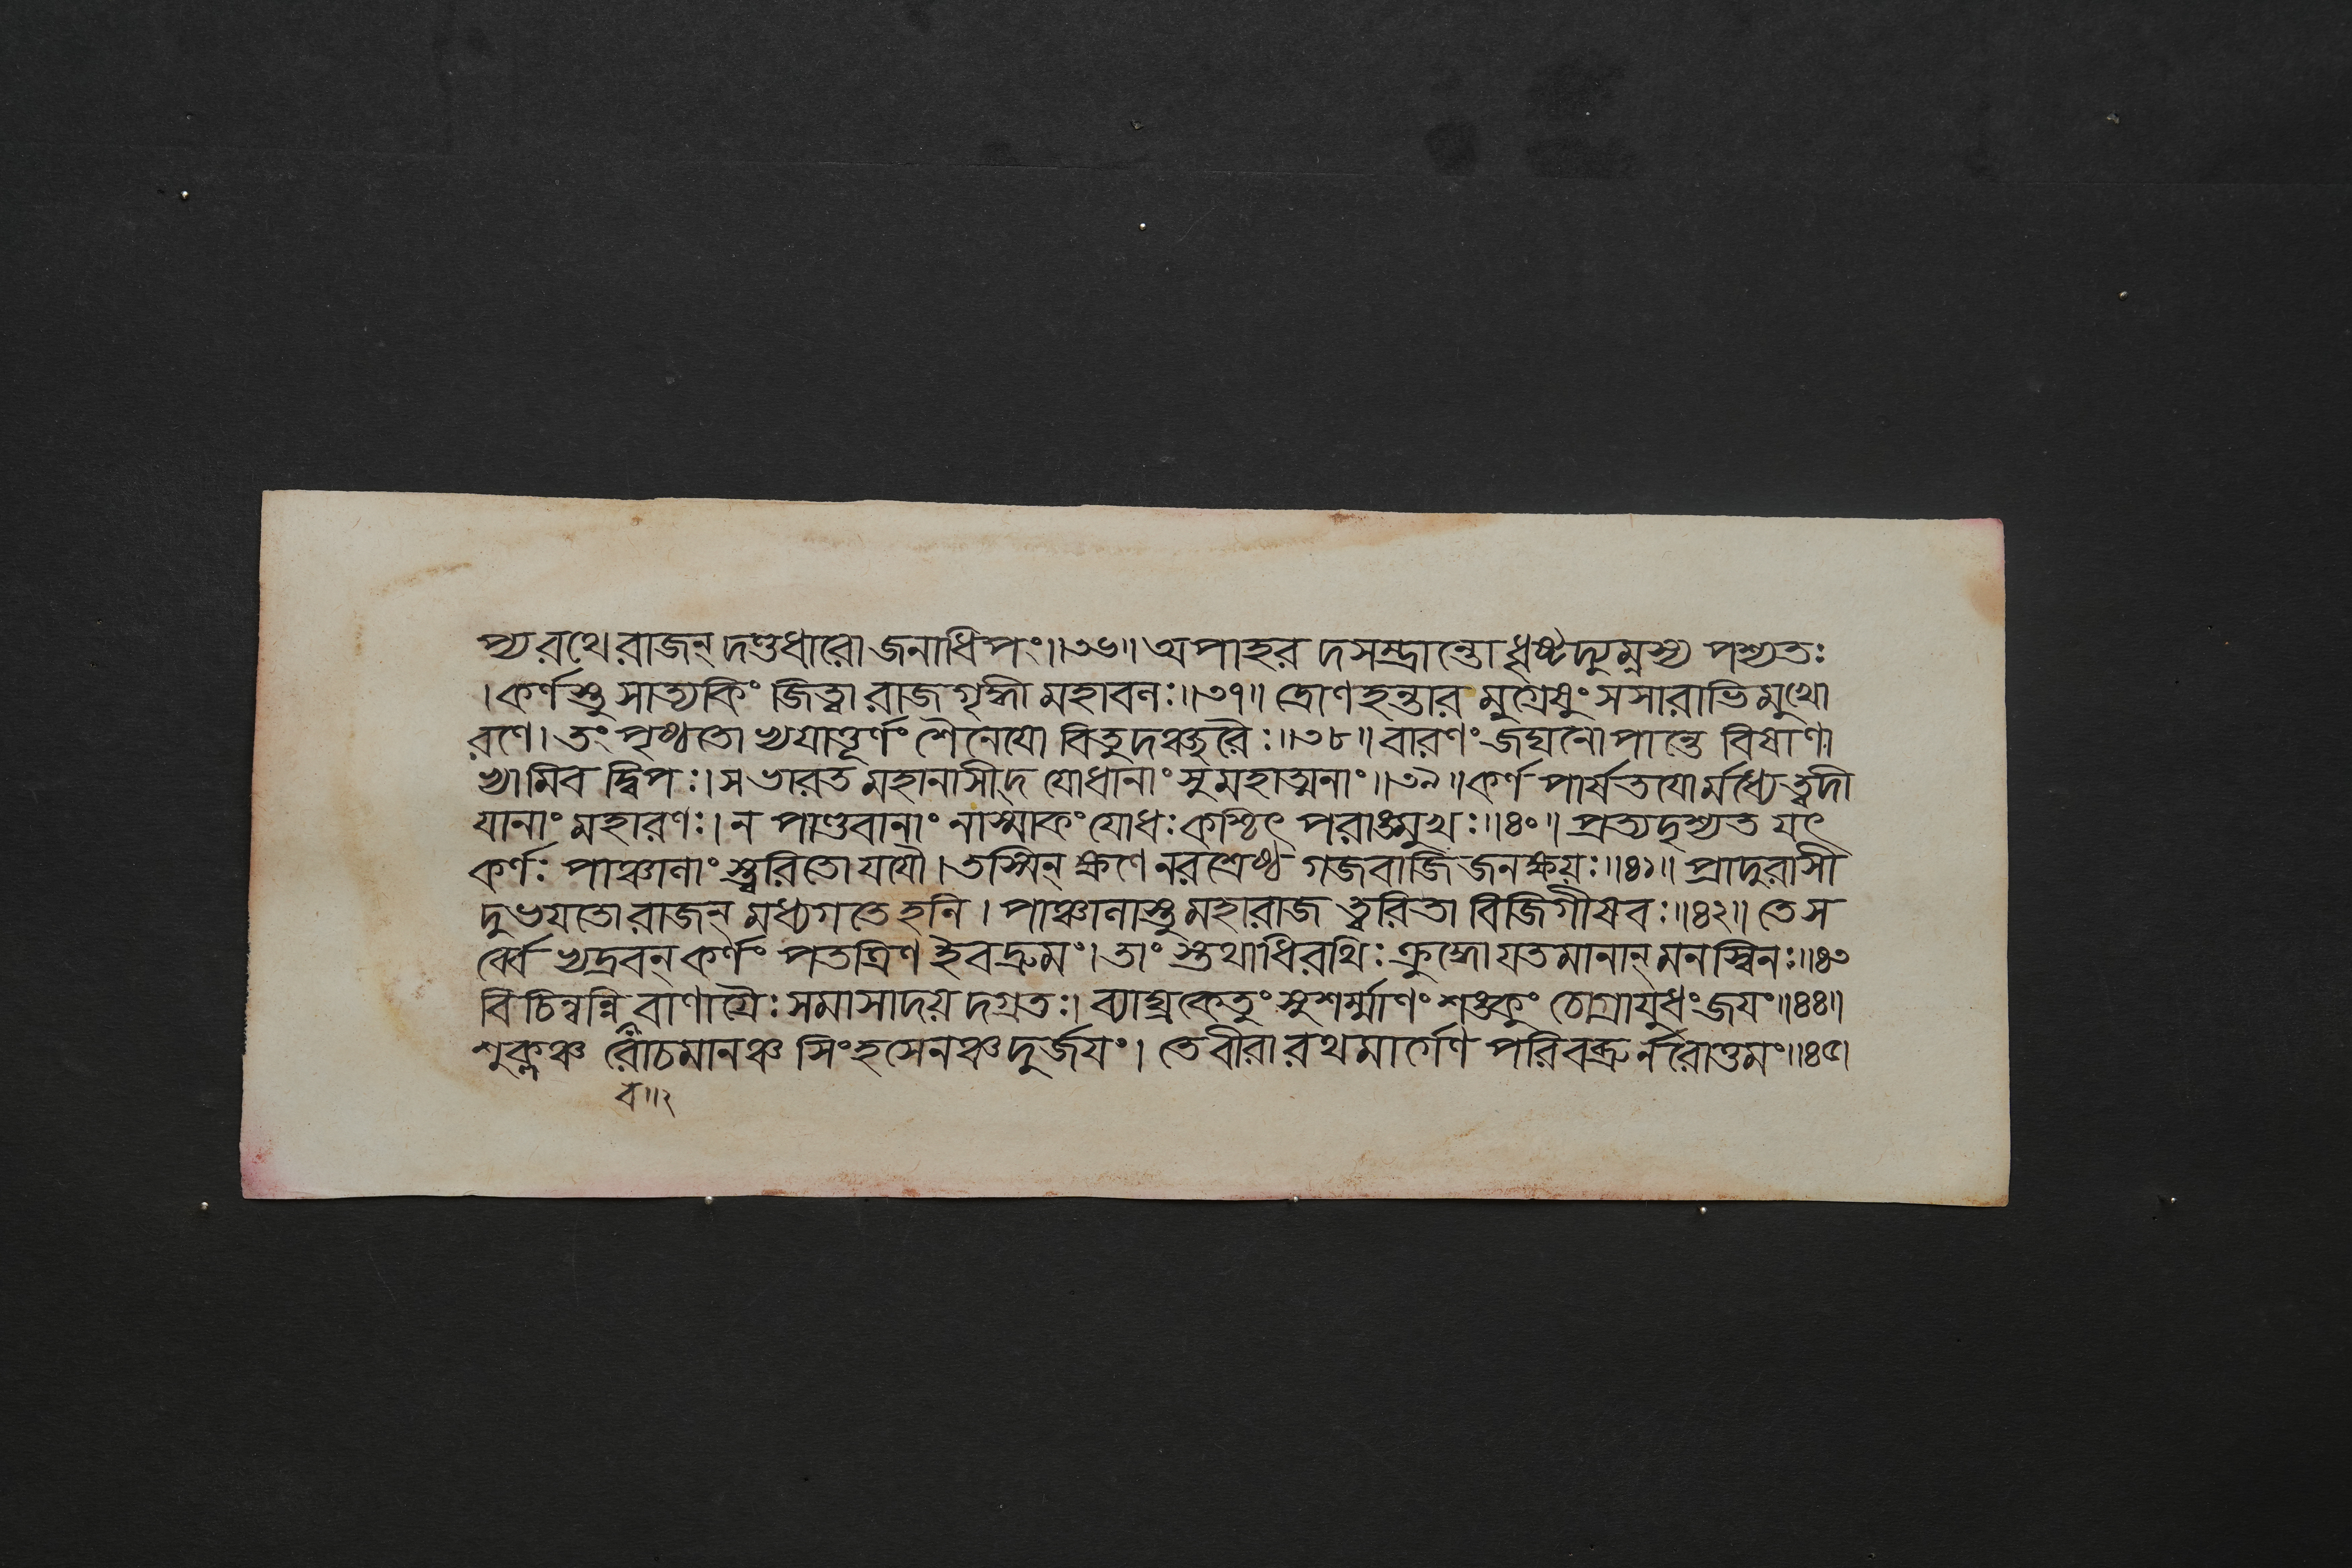 প্য রথে রাজন্ দণ্ডধারো জনাধিপং॥৩৬॥ অপাহর দসম্ভ্রান্তো ধৃষ্টদ্যুম্নস্য পশ্যতঃ
।কর্ণস্তু সাত্যকিং জিত্বা রাজগৃদ্ধী মহাবলঃ॥৩৭॥ দ্রোণহন্তার মুগ্রেষুং সসারাভিমুখো
রণে। তং পৃষ্ঠতো ভ্যযাত্তূর্ণং শৈনেযো বিতুদঞ্ছরৈঃ॥৩৮॥ বারণং জঘনোপান্তে বিষাণা
ভ্যামিব দ্বিপঃ। স ভারত মহানাসীদ্ যোধানাং সুমহাত্মনাং॥৩৯॥ কর্ণ পার্ষতযোর্মধ্যে ত্বদী
যানাং মহারণঃ। ন পাণ্ডবানাং নাস্মাকং যোধঃ কশ্চিৎ পরাঙ্মুখঃ॥৪০॥ প্রত্যদৃশ্যত যৎ
কর্ণঃ পাঞ্চালাংস্ত্বরিতো যযৌ। তস্মিন্ ক্ষণে নরশ্রেষ্ঠ গজবাজিজনক্ষয়ঃ॥৪১॥ প্রাদুরাসী
দুভযতো রাজন্ মধ্যগতেহনি। পাঞ্চালাস্তু মহারাজ ত্বরিতা বিজিগীষবঃ॥৪২॥ তে স
র্ব্বে ভ্যদ্রবন্ কর্ণং পতত্রিণ ইব দ্রুমং। তাং স্তথাধিরথিঃ ক্রুদ্ধো যতমানান্ মনস্বিনঃ॥৪৩
বিচিন্বন্নি বাণাগ্রৈঃ সমাসাদয় দগ্রতঃ। ব্যাঘ্রকেতুং সুশর্ম্মাণং শঙ্কুং চোগ্রাযুধং জযং॥৪৪॥
শুক্লঞ্চ রোচমানঞ্চ সিংহসেনঞ্চ দুর্জযং। তে বীরা রথমার্গেণ পরিবব্রুর্নরোত্তমং॥৪৫।
ব॥২